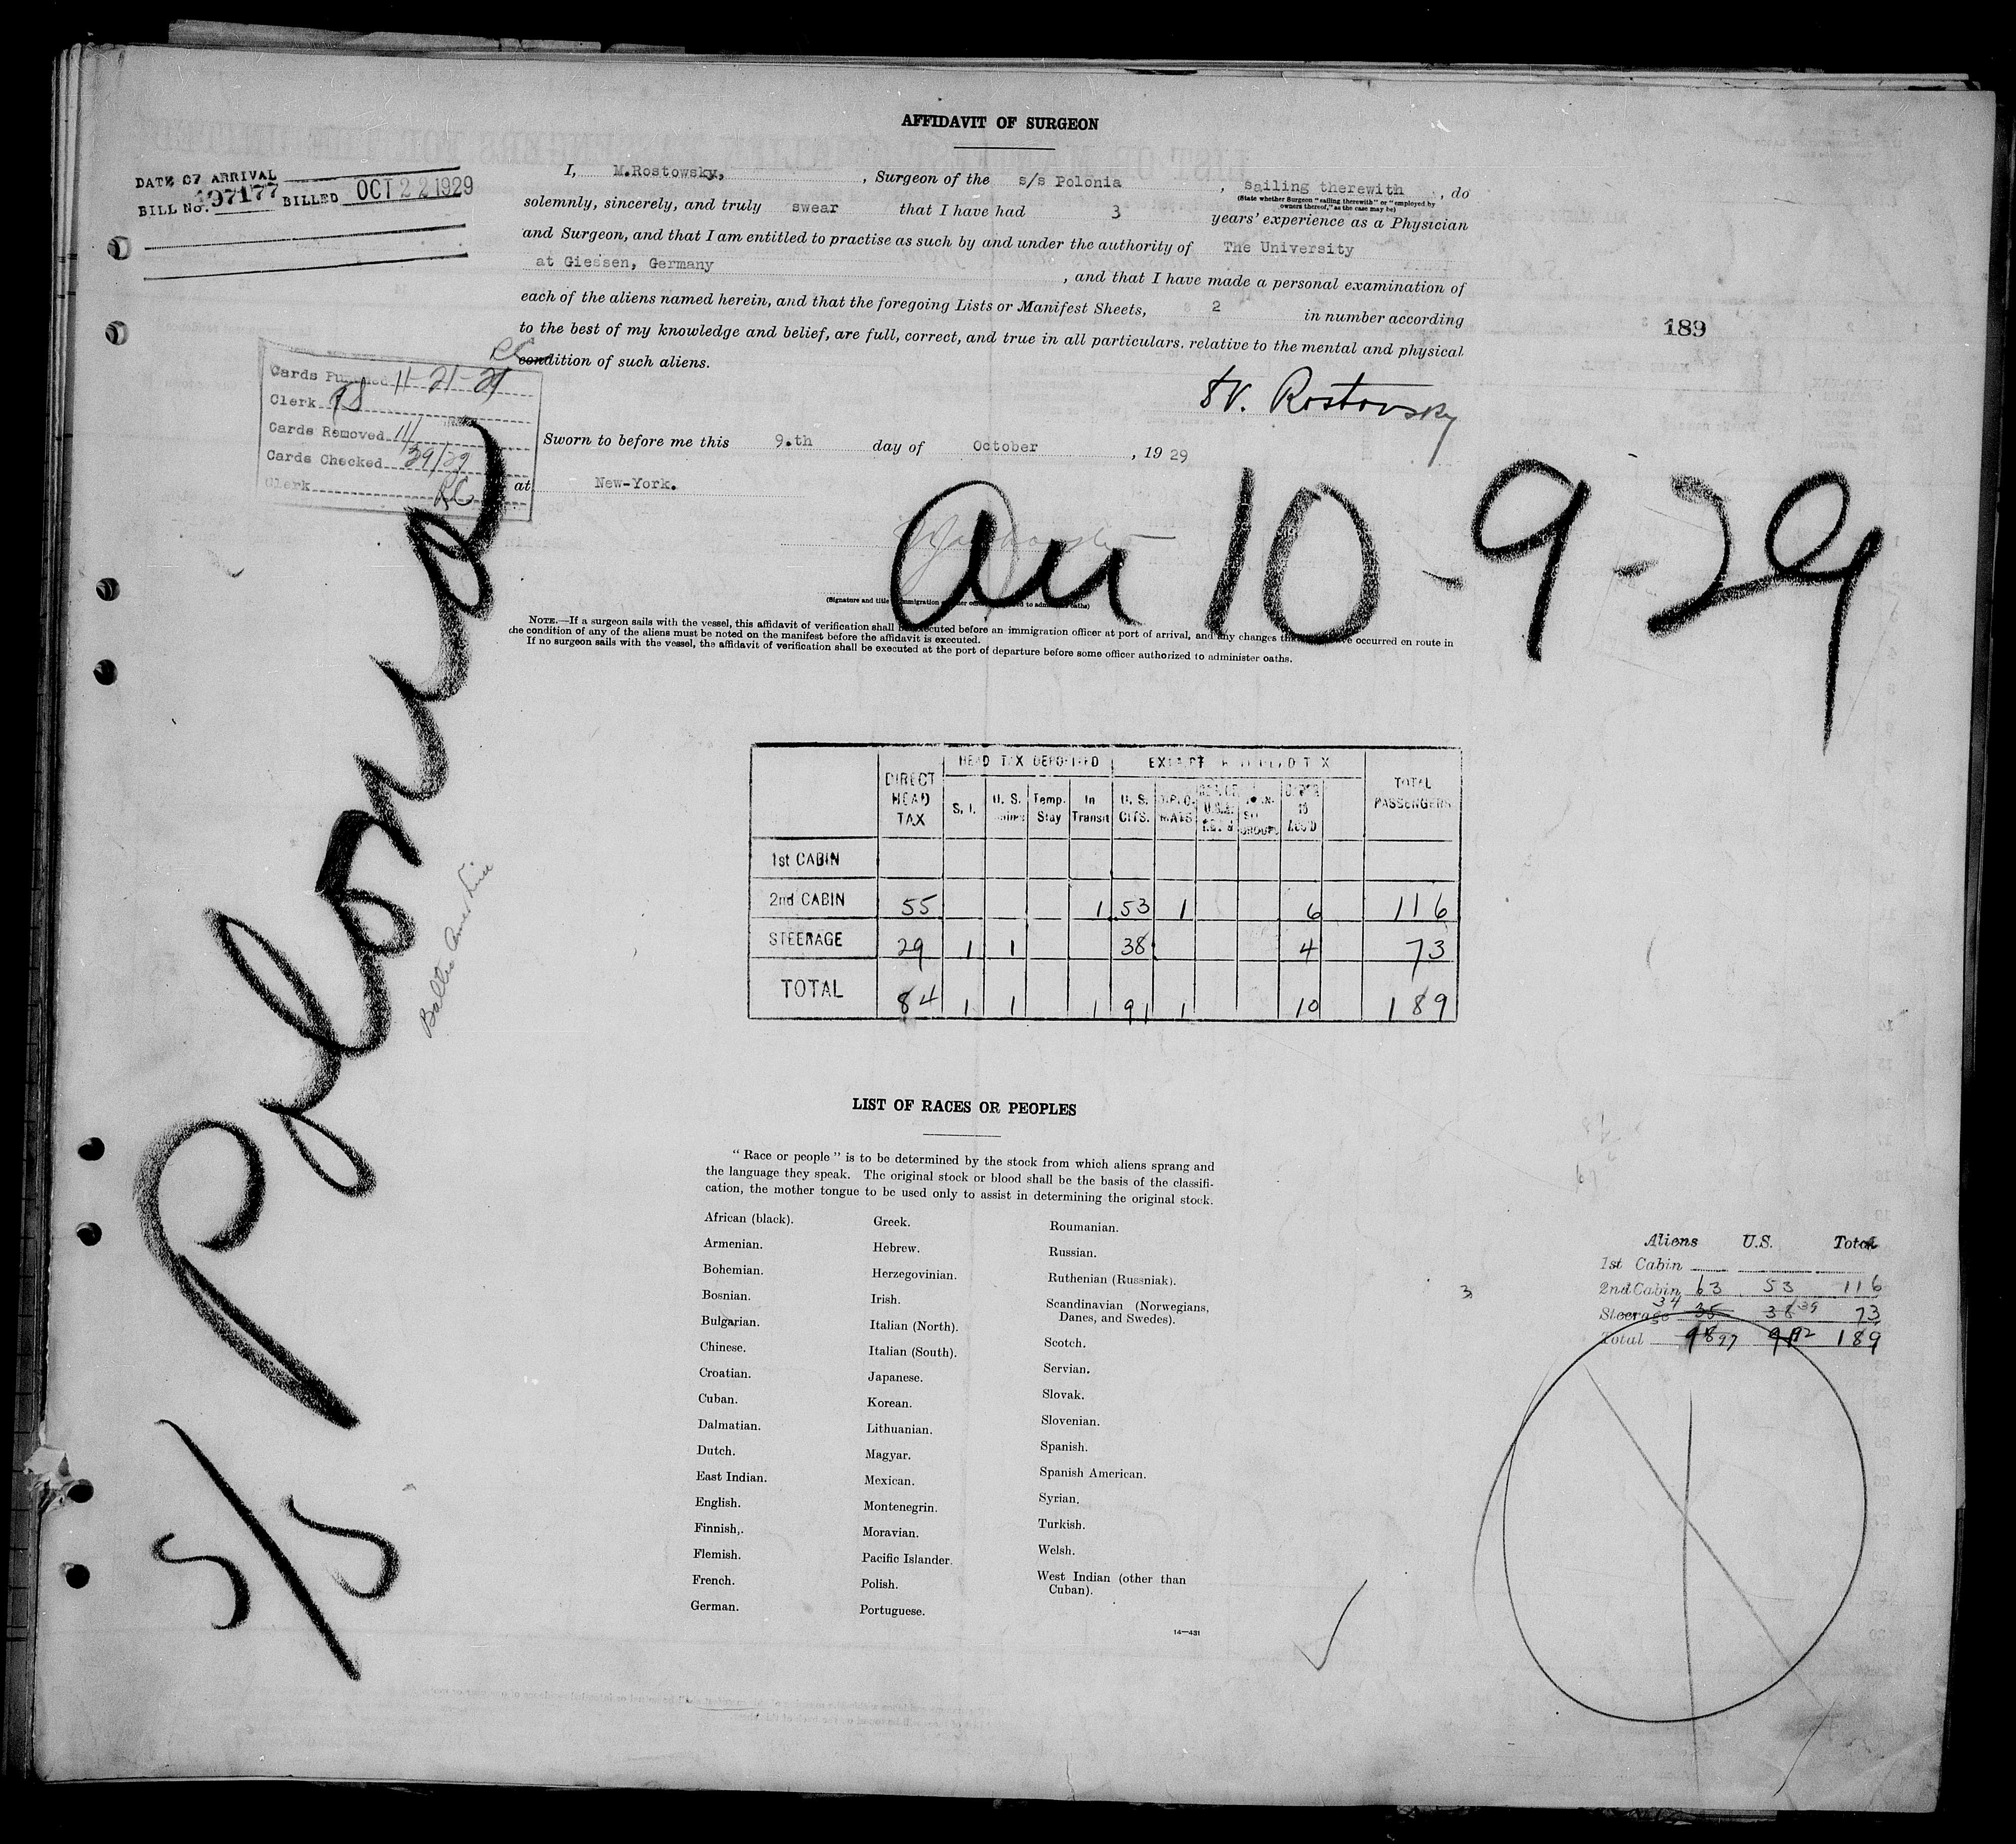 AFFIDAVIT OF SURGEON
DATE OF ARRIVAL
BILL No. 197177 BILLED OCT 22 1929
I, M.Rostowsky, , Surgeon of the s/s Polonia , sailing therewith , do
(State whether Surgeon "sailing therewith" or "employed by
owners thereof," as the case may be)
solemnly, sincerely, and truly swear that I have had 3 years' experience as a Physician
and Surgeon, and that I am entitled to practise as such by and under the authority of The University
at Giessen, Germany , and that I have made a personal examination of
each of the aliens named herein, and that the foregoing Lists or Manifest Sheets, 2 in number according
to the best of my knowledge and belief, are full, correct, and true in all particulars. relative to the mental and physical
condition of such aliens.
189
Cards Punched 11-21-29
Clerk
Cards Removed
Cards Checked
Clerk
Rostovsky
Sworn to before me this 9.th day of October , 19 29
at New-York.
10-9-29
(Signature and title immigration to administer oaths)
NOTE.—If a surgeon sails with the vessel, this affidavit of verification shall be executed before an immigration officer at port of arrival, and any changes occurred en route in
the condition of any of the aliens must be noted on the manifest before the affidavit is executed.
If no surgeon sails with the vessel, the affidavit of verification shall be executed at the port of departure before some officer authorized to administer oaths.
S/S Polonia
Baltic Amer Line
HEAD TAX DEPOSITED
DIRECT HEAD TAX S. I. U. S. Temp. Stay In Transit U. S. CITS. TOTAL PASSENGERS
1st CABIN
2nd CABIN 55 1 53 1 6 116
STEERAGE 29 1 1 38 4 73
TOTAL 84 1 1 1 91 1 10 189
LIST OF RACES OR PEOPLES
"Race or people" is to be determined by the stock from which aliens sprang and
the language they speak. The original stock or blood shall be the basis of the classifi-
cation, the mother tongue to be used only to assist in determining the original stock.
African (black).
Armenian.
Bohemian.
Bosnian.
Bulgarian.
Chinese.
Croatian.
Cuban.
Dalmatian.
Dutch.
East Indian.
English.
Finnish,.
Flemish.
French.
German.
Greek.
Hebrew.
Herzegovinian.
Irish.
Italian (North).
Italian (South).
Japanese.
Korean.
Lithuanian.
Magyar.
Mexican.
Montenegrin.
Moravian.
Pacific Islander.
Polish.
Portuguese.
Roumanian.
Russian.
Ruthenian (Russniak).
Scandinavian (Norwegians,
Danes, and Swedes).
Scotch.
Servian.
Slovak.
Slovenian.
Spanish.
Spanish American.
Syrian.
Turkish.
Welsh.
West Indian (other than
Cuban).
14—431
3
Aliens U.S. Total
1st Cabin
2nd Cabin 63 53 116
Steerage 34 35 38 39 73
Total 98 97 91 92 189